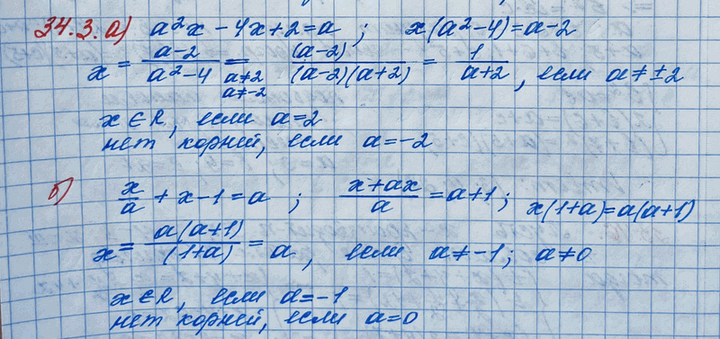 34.3. а) a²x - 4x + 2 = a ; x(a² - 4) = a - 2
x = (a-2)/(a²-4) = (a≠2, a≠-2) (a-2)/((a-2)(a+2)) = 1/(a+2), если a ≠ ±2
x ∈ R, если a = 2
нет корней, если a = -2
б) x/a + x - 1 = a ; (x+ax)/a = a+1 ; x(1+a) = a(a+1)
x = a(a+1)/(1+a) = a, если a ≠ -1 ; a ≠ 0
x ∈ R, если a = -1
нет корней, если a = 0